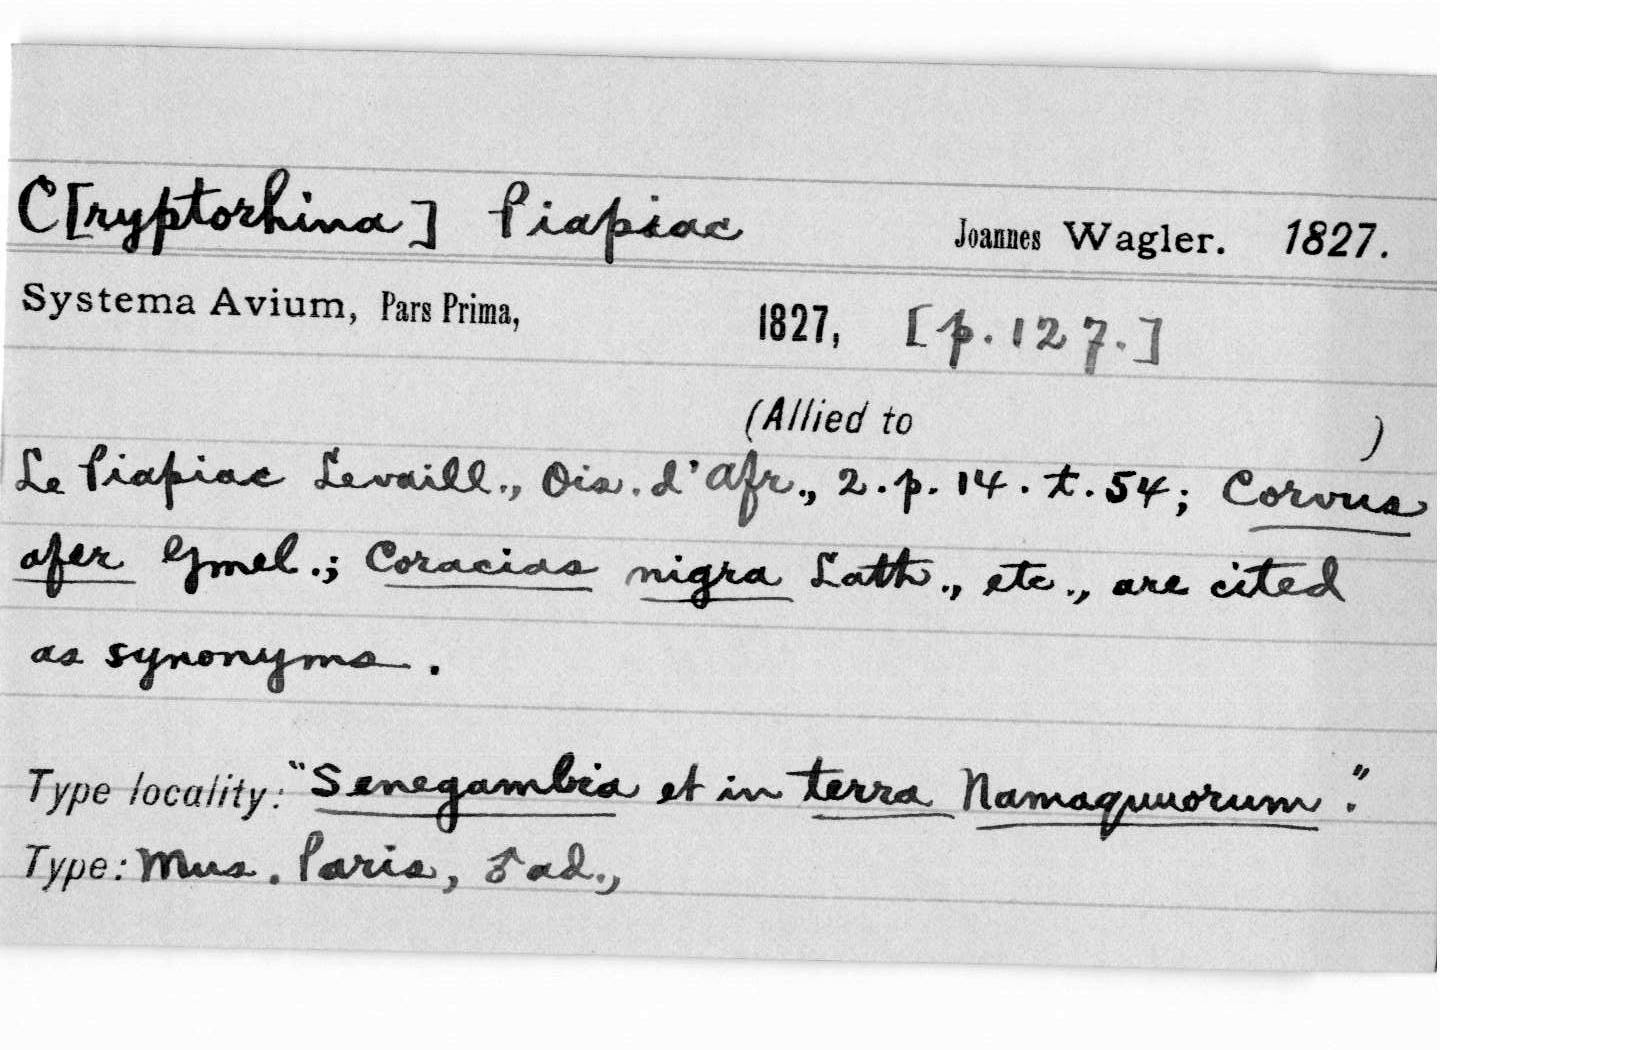 C[ryptorhina] Piapiac Joannes Wagler. 1827.
Systema Avium, Pars Prima, 1827, [p.127.]
(Allied to )
Le Piapiac Levaill., Ois. d'Afr., 2.p.14.t.54; Corvus
afer Gmel.; Coracias nigra Lath., etc., are cited
as synonyms.
Type locality: "Senegambia et in terra Namaquuorum."
Type: Mus. Paris, ♂ ad.,